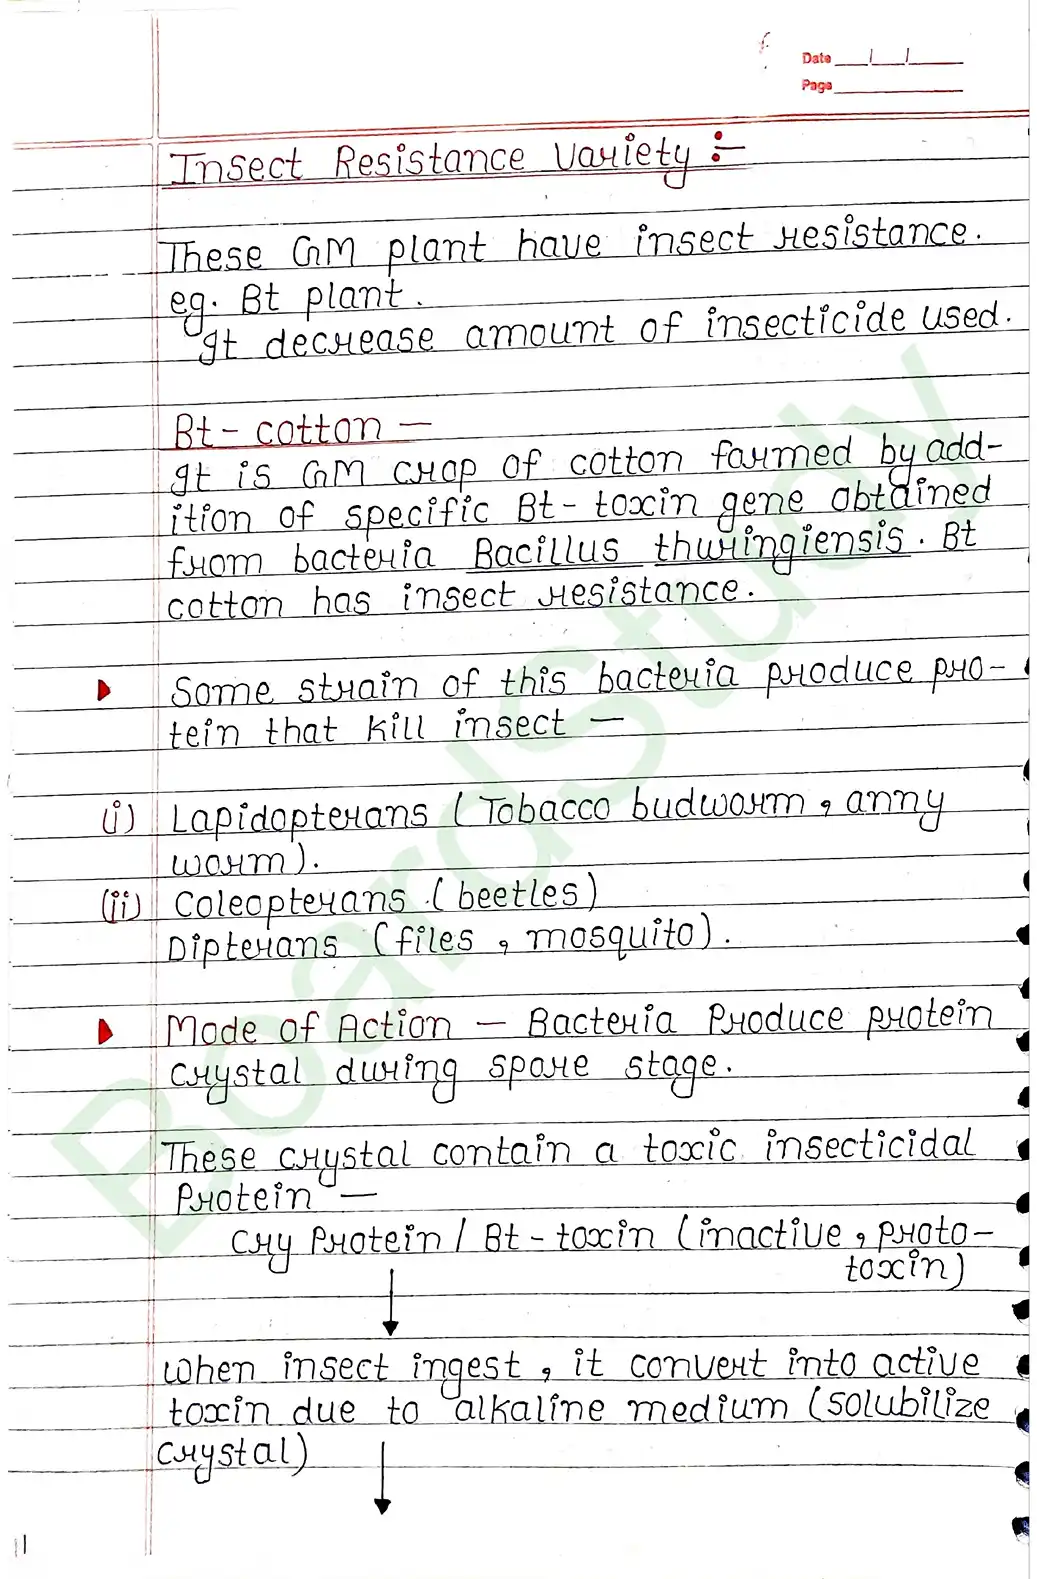 Date __/__/__
Page
Insect Resistance Variety :-
These GM plant have insect resistance.
eg. Bt plant.
It decrease amount of insecticide used.
Bt - cotton —
It is GM crop of cotton formed by add-
ition of specific Bt - toxin gene obtained
from bacteria Bacillus thuringiensis. Bt
cotton has insect resistance.
Some strain of this bacteria produce pro-
tein that kill insect —
(i) Lapidopterans (Tobacco budworm, anny
worm).
(ii) Coleopterans (beetles)
Dipterans (files, mosquito).
Mode of Action — Bacteria Produce protein
crystal during spore stage.
These crystal contain a toxic insecticidal
Protein —
Cry Protein / Bt - toxin (inactive, proto-
toxin)
When insect ingest, it convert into active
toxin due to alkaline medium (solubilize
crystal)
BoardStudy